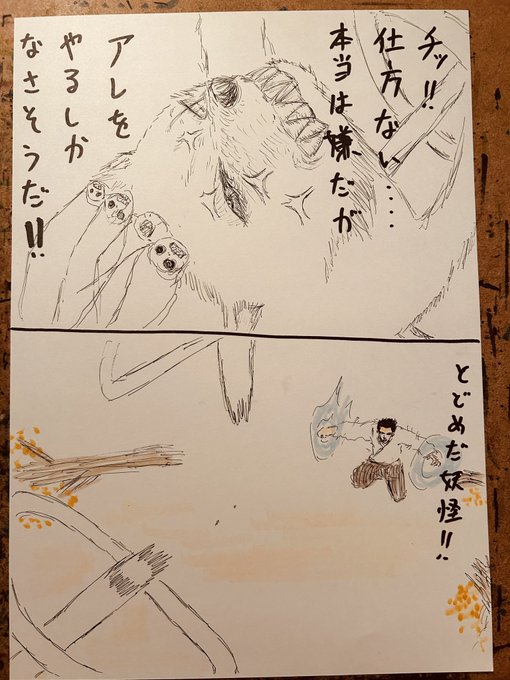 チッ!!
仕方ない‥‥
本当は嫌だが
アレを
やるしか
なさそうだ!!
とどめだ妖怪!!